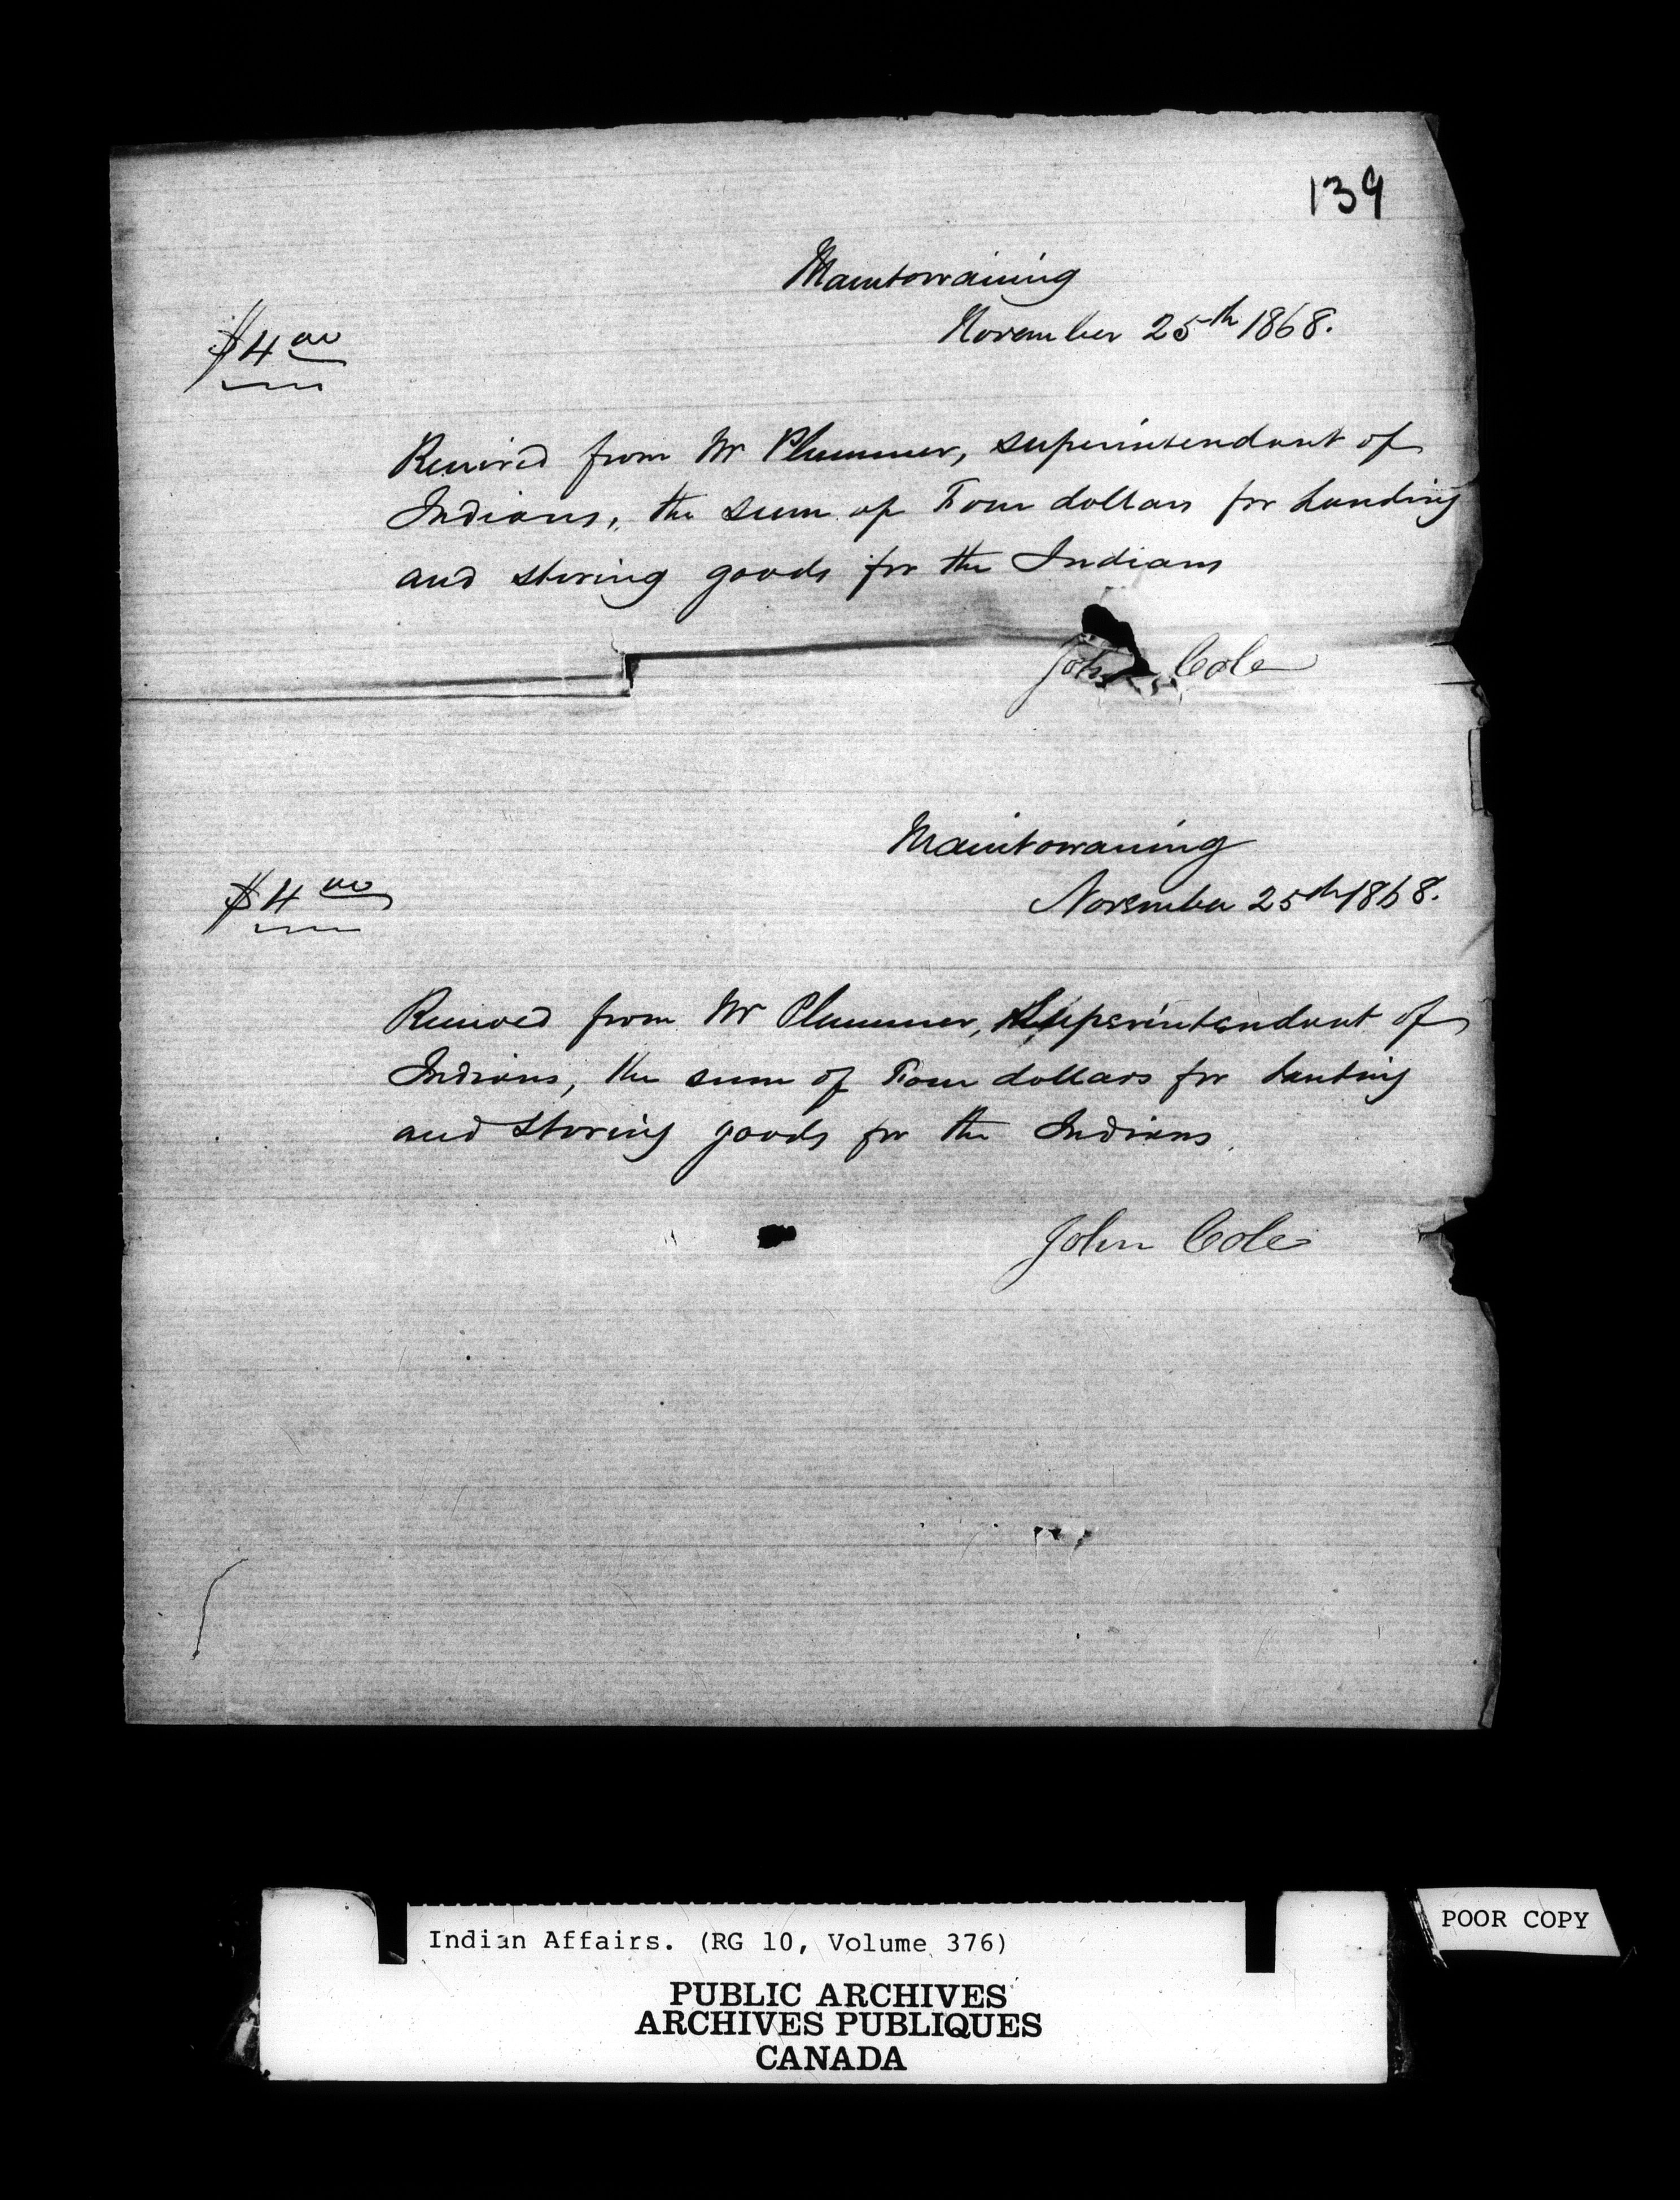 139
Manitowaning
November 25th 1868.
$4 00
Received from Mr Plummer, superintendant of
Indians, the sum of Four dollars for Landing
and storing goods for the Indians
John Cole
Manitowaning
November 25th 1868.
$4 00
Received from Mr Plummer, Superintendant of
Indians, the sum of Four dollars for Landing
and storing goods for the Indians.
John Cole
Indian Affairs. (RG 10, Volume 376)
PUBLIC ARCHIVES
ARCHIVES PUBLIQUES
CANADA
POOR COPY